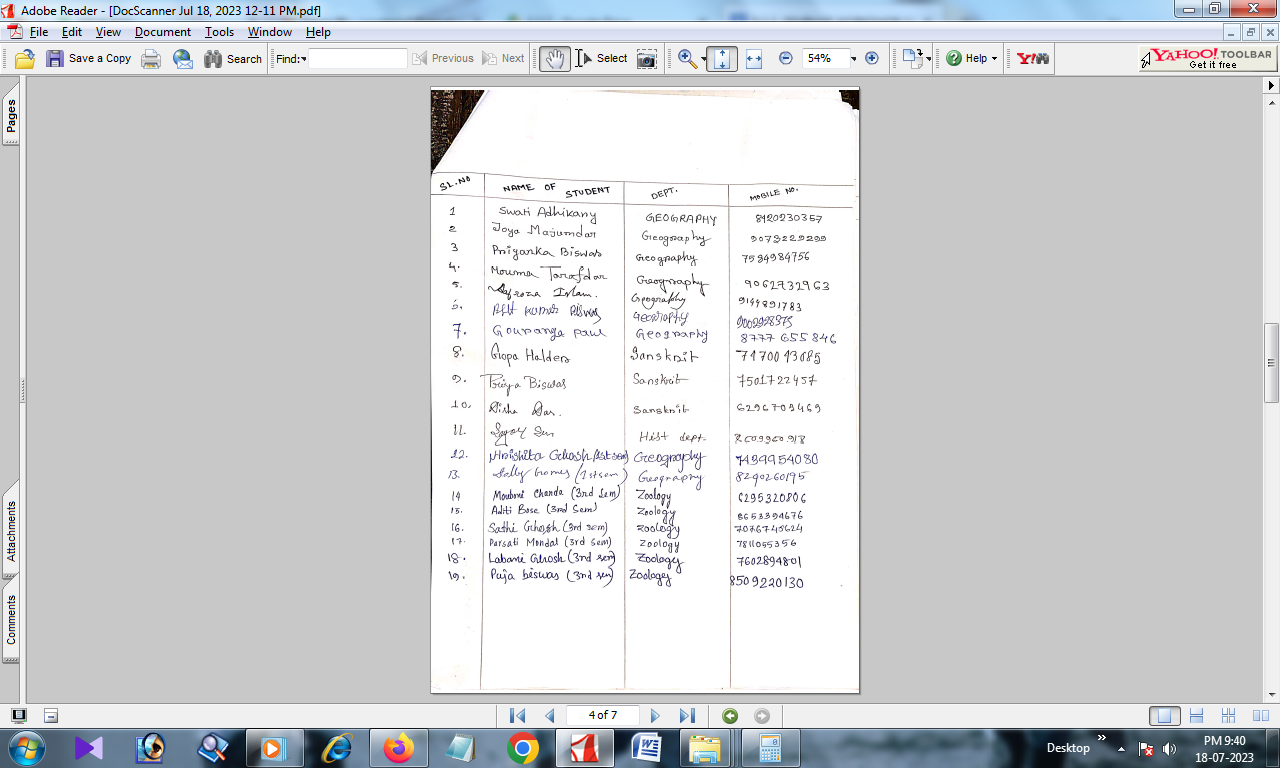 Adobe Reader - [DocScanner Jul 18, 2023 12-11 PM.pdf]
File Edit View Document Tools Window Help
Save a Copy Search Find: Previous Next Select 54% Help Y! YAHOO! TOOLBAR
Get it free
Pages
Attachments
Comments
SL.NO NAME OF STUDENT DEPT. MOBILE NO.
1 Swati Adhikary GEOGRAPHY 8920230357
2 Joya Majumdar Geography 9073229299
3 Priyanka Biswas Geography 7594984756
4. Mouma Tarafdar Geography 9062732963
5. Afroza Islam. Geography 9144891783
6. Kumar Biswas Geography
7. Gouranga paul Geography 8777 655 846
8. Gopa Halder Sanskrit
9. Priya Biswas Sanskrit 7501722457
10. Disha Das. Sanskrit 6296709469
11. Sen Hist dept.
12. Hrishita Ghosh (1st sem) Geography 7439954080
13. Gomes (1st sem) Geography 8290260195
14 Moubani Chanda (3rd sem) Zoology 6295320806
15. Aditi Bose (3rd Sem) Zoology 8653394676
16. Sathi Ghosh (3rd sem) Zoology 7076745624
17. Parsati Mondal (3rd sem) Zoology 7811055356
18. Labani Ghosh (3rd sem) Zoology 7602894801
19. Puja biswas (3rd sem) Zoology 8509220130
4 of 7
Desktop PM 9:40
18-07-2023